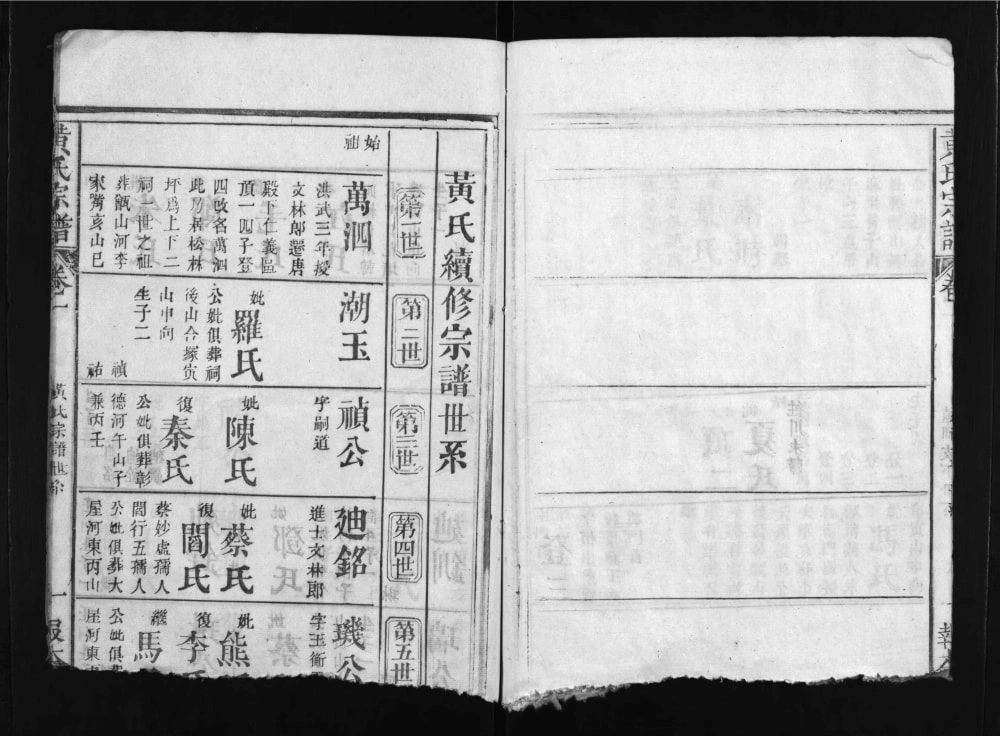 黃氏續修宗譜世系
第一世
始祖
萬泗
洪武三年授
文林郎遷唐
殿下仁義區
頂一四子登
四改名萬泗
此乃居松林
坪爲上下二
祠一世之祖
葬瓶山河李
家嘴亥山巳
第二世
潮玉
妣羅氏
公妣俱葬祠
後山合塚寅
山申向
生子二
禎
祐
第三世
禎公
字嗣道
妣陳氏
復秦氏
公妣俱葬彰
德河午山子
兼丙壬
第四世
廸銘
進士文林郎
妣蔡氏
復閻氏
蔡妙處孺人
閻行五孺人
公妣俱葬大
屋河東丙山
第五世
璣公
字玉衡
妣熊
復李氏
繼馬
公妣俱葬
屋河東
黃氏宗譜
卷一
黃氏宗譜世系
一
黃氏宗譜